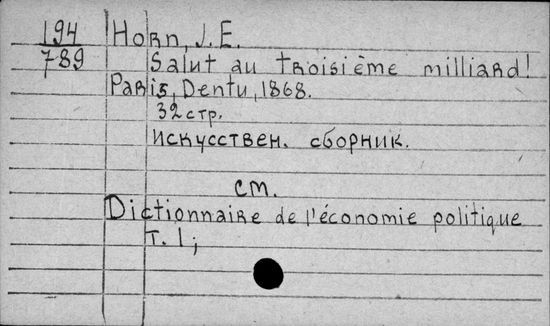 194 Horn, J. E.
789 Salut au troisième milliard!
Paris, Dentu, 1868.
32 стр.
искусствен. сборник.
см.
Dictionnaire de l'économie politique
т. I;